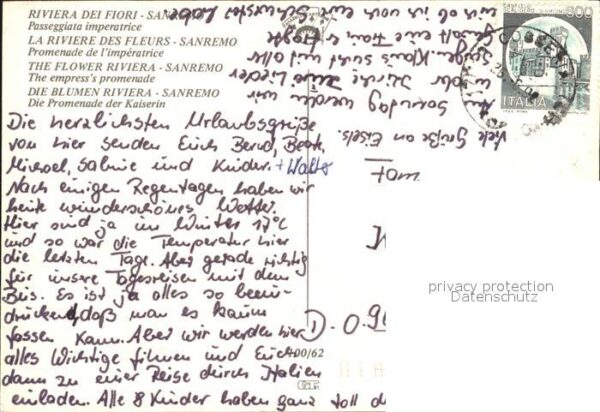 RIVIERA DEI FIORI - SANREMO
Passeggiata imperatrice
LA RIVIERE DES FLEURS - SANREMO
Promenade de l'impératrice
THE FLOWER RIVIERA - SANREMO
The empress's promenade
DIE BLUMEN RIVIERA - SANREMO
Die Promenade der Kaiserin
Die herzlichsten Urlaubsgrüße
von hier senden Euch Bernd, Beate,
Michael, Sabine und Kinder. + Walter
Nach einigen Regentagen haben wir
heute wunderschönes Wetter.
Hier sind ja im Winter 17°C
und so war die Temperatur hier
die letzten Tage. Aber gerade richtig
für unsere Tagesreisen mit dem
Bus. Es ist ja alles so beein-
druckend, daß man es kaum
fassen kann. Aber wir werden hier
alles Wichtige filmen und Euch
dann zu einer Reise durch Italien
einladen. Alle 8 Kinder haben ganz toll d
Am Sonntag werden wir
in der Kirche zwei Lieder
singen. Klaus sucht und
eine Frau
ob ich noch eine Schwester habe
Viele Grüße an Eisels.
800
ITALIA
D-0
400/62
privacy protection
Datenschutz